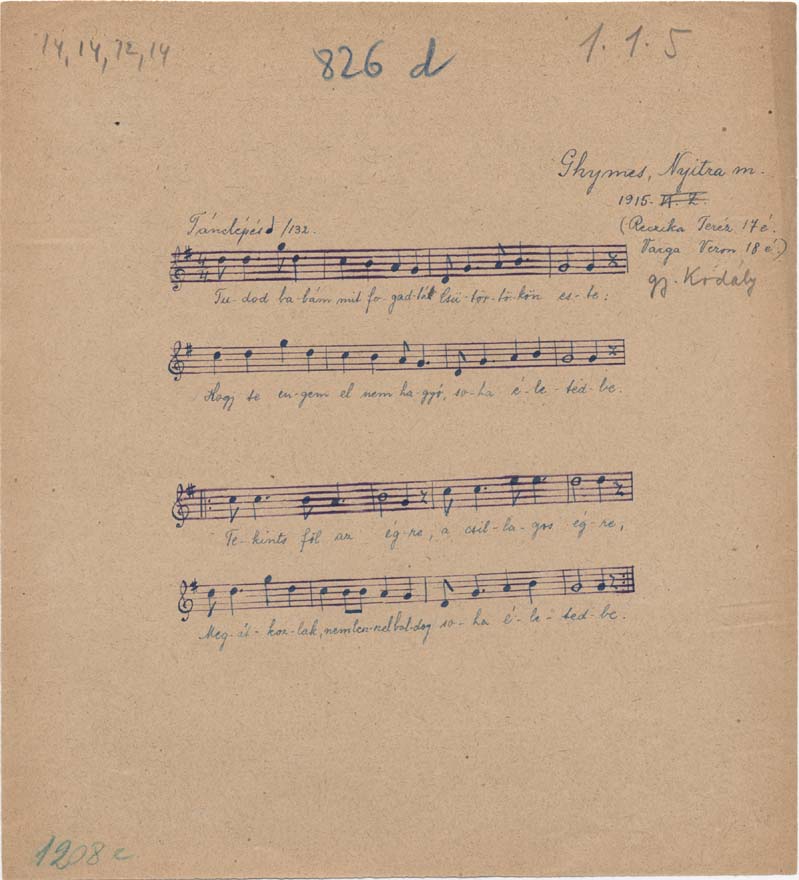 14, 14, 12, 14
826 d
1. 1. 5
Ghymes, Nyitra m.
1915.
(Reczika Teréz 17 é.
Varga Veron 18 é.)
gy. Kodály
Tánclépés /132.
4/4
Tu-dod ba-bám mit fo-gad-tál Csü-tör-tö-kön es-te:
Hogy te en-gem el nem ha-gyó, so-ha é-le-ted-be.
Te-kints föl az ég-re, a csil-la-gos ég-re,
Meg-át-koz-lak, nem len-nel bol-dog so-ha é-le-ted-be.
1208 c